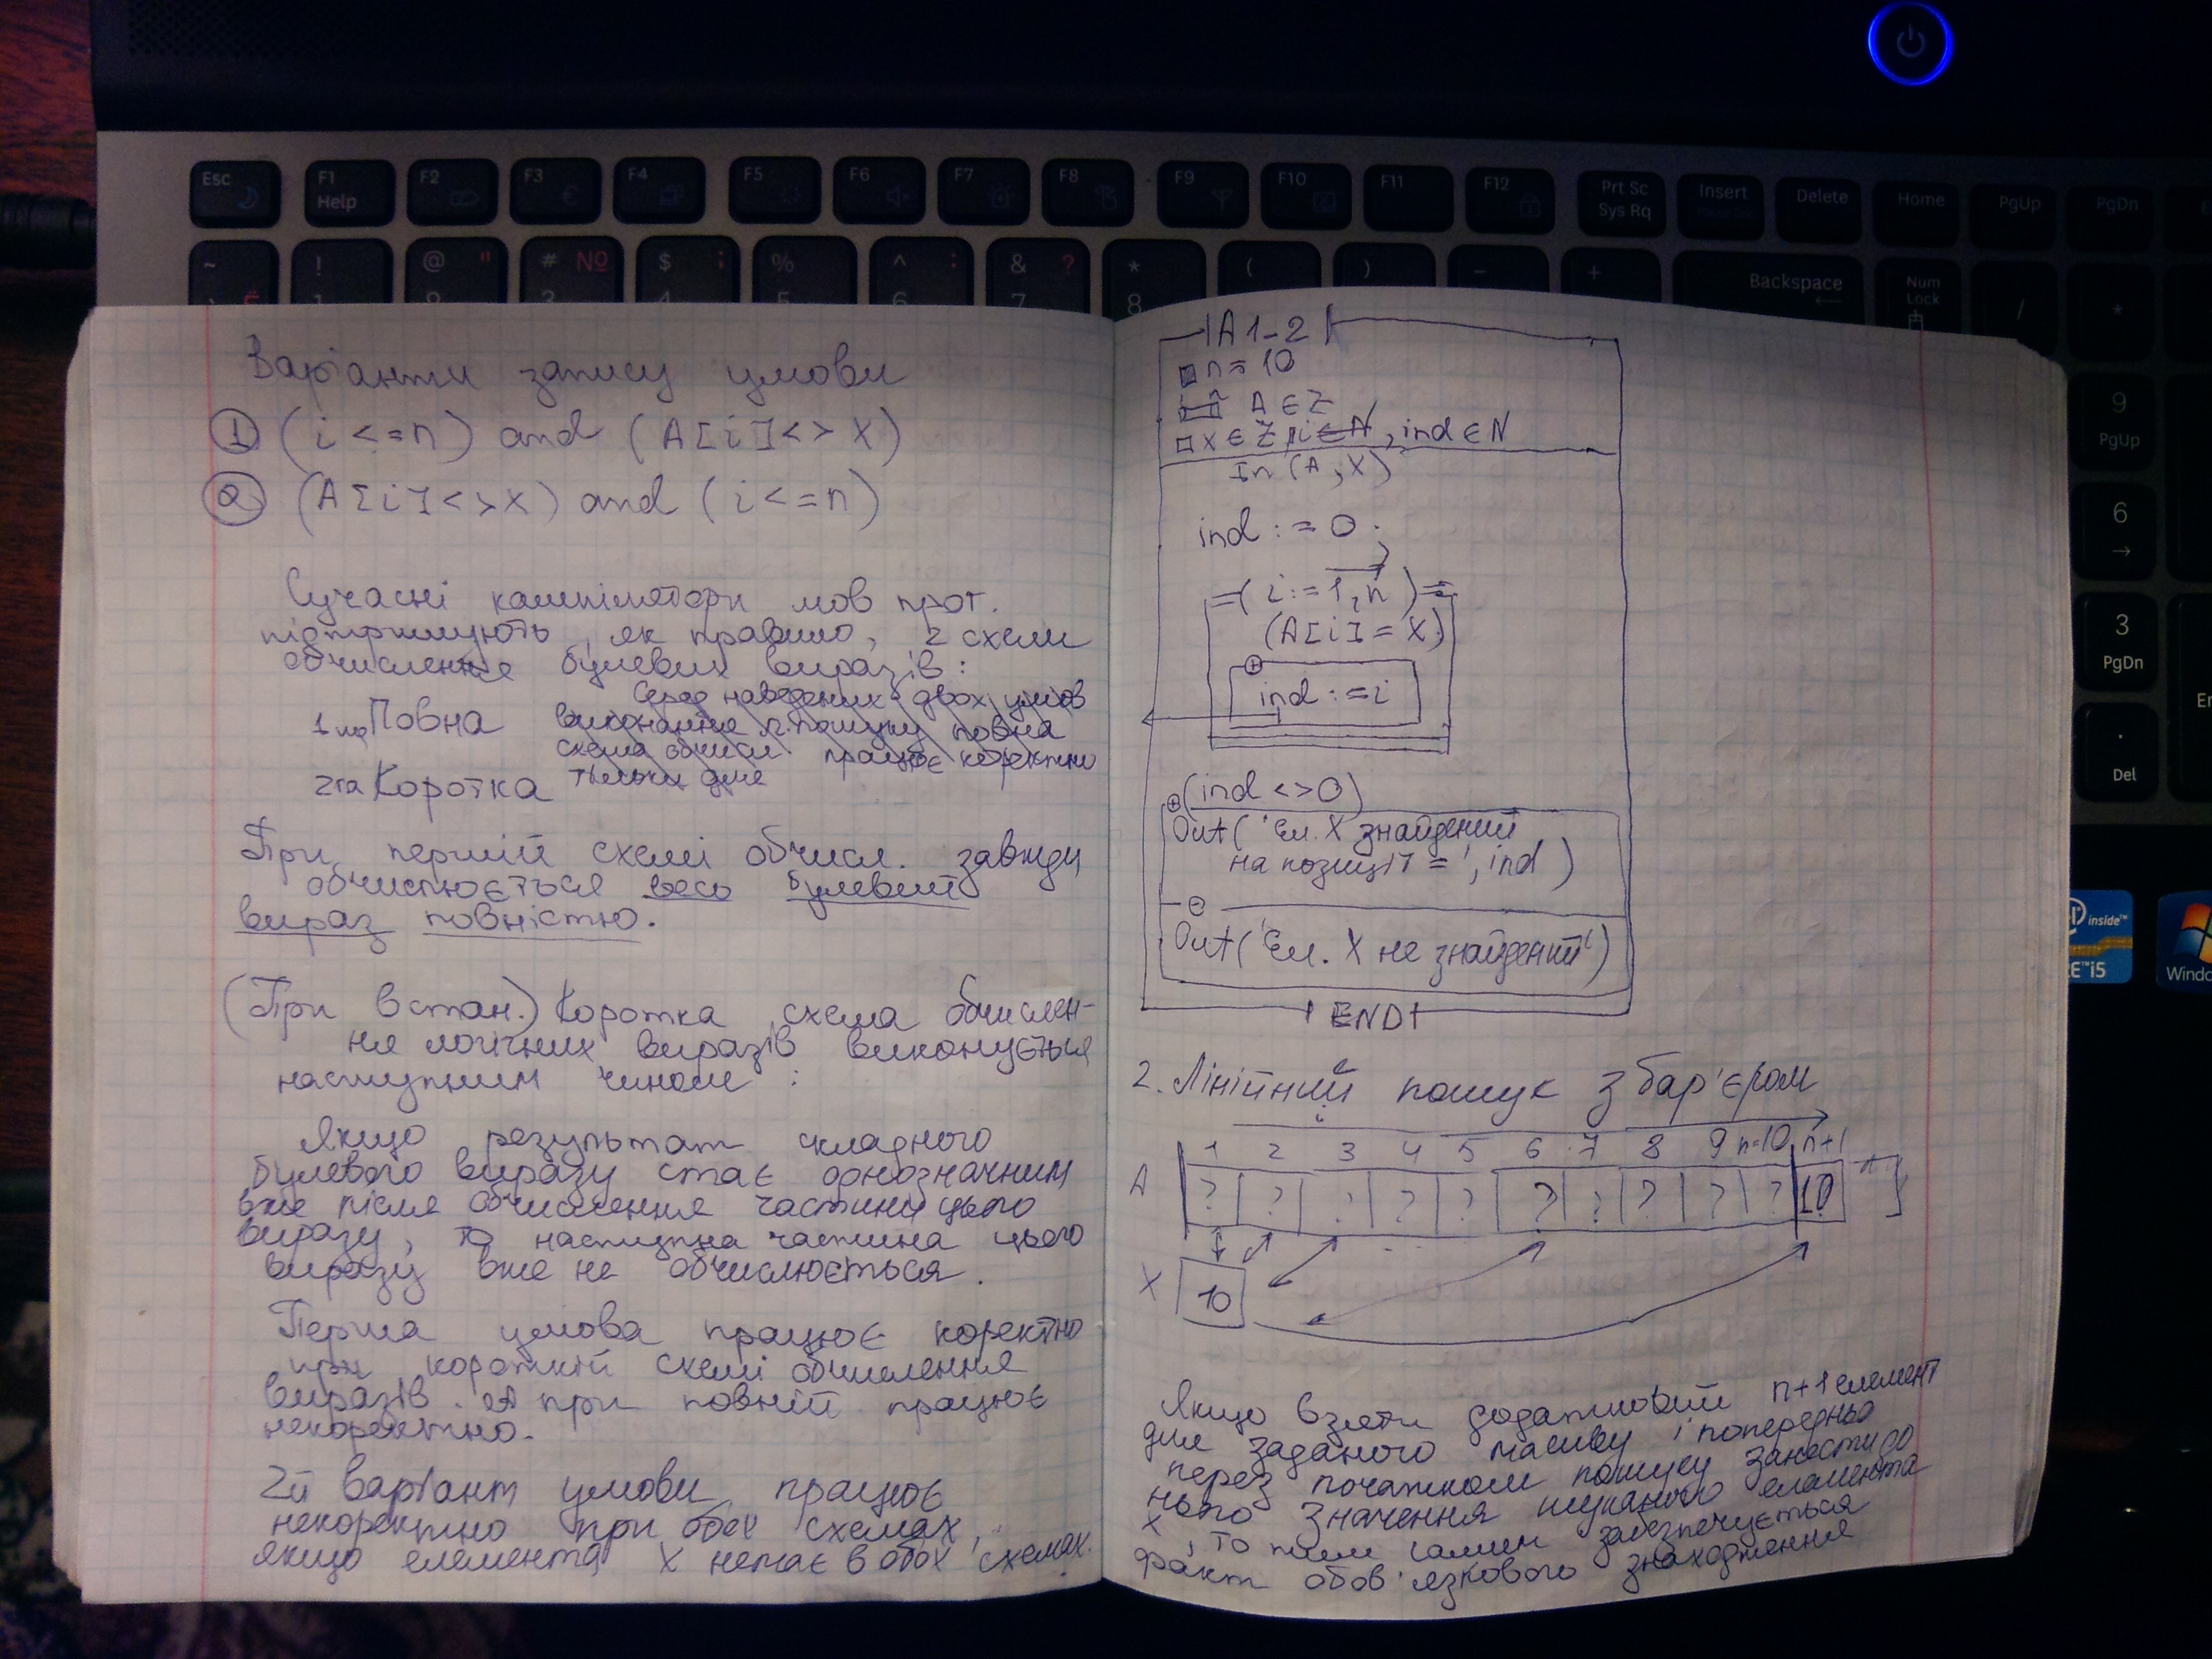 Esc
F1
Help
F2
F3
F4
F5
F6
F7
F8
F9
F10
F11
F12
Prt Sc
Sys Rq
Insert
Delete
Home
PgUp
PgDn
~
!
@ "
# №
$ ;
%
^ :
& ?
*
(
)
-
+
Backspace
Num
Lock
/
*
9
PgUp
6
3
PgDn
.
Del
inside™
Варіанти запису умови
① (i <= n) and (A[i] <> X)
② (A[i] <> X) and (i <= n)
Сучасні компілятори мов прог.
підтримують, як правило, 2 схеми
обчислення булевих виразів:
Серед наведених двох умов
1ша Повна виконання п. пошуку повна
схема обчисл. працює коректно
2га Коротка тільки для
При першій схемі обчисл. завжди
обчислюється весь булевий
вираз повністю.
(При встан.) Коротка схема обчислен-
ня логічних виразів виконується
наступним чином:
Якщо результат складного
булевого виразу стає однозначним
вже після обчислення частини цього
виразу, то наступна частина цього
виразу вже не обчислюється.
Перша умова працює коректно
при короткій схемі обчислення
виразів. А при повній працює
некоректно.
2й варіант умови працює
некоректно при обох схемах,
якщо елемента X немає в обох схемах.
A1-2
n = 10
A ∈ Z
X ∈ Z, i ∈ N, ind ∈ N
In (A, X)
ind := 0;
=( i := 1, n )=
(A[i] = X)
⊕
ind := i
⊕ (ind <> 0)
Out('Ел. X знайдений
на позиції = ', ind)
⊖
Out('Ел. X не знайдений')
END
2. Лінійний пошук з бар'єром
i
1 2 3 4 5 6 7 8 9 n=10 n+1
A ? ? ? ? ? ? ? ? ? ? 10
X 10
Якщо взяти додатковий n+1 елемент
для заданого масиву і попередньо
перез початком пошуку занести до
нього значення шуканого елемента
X, то тим самим забезпечується
факт обов'язкового знаходження